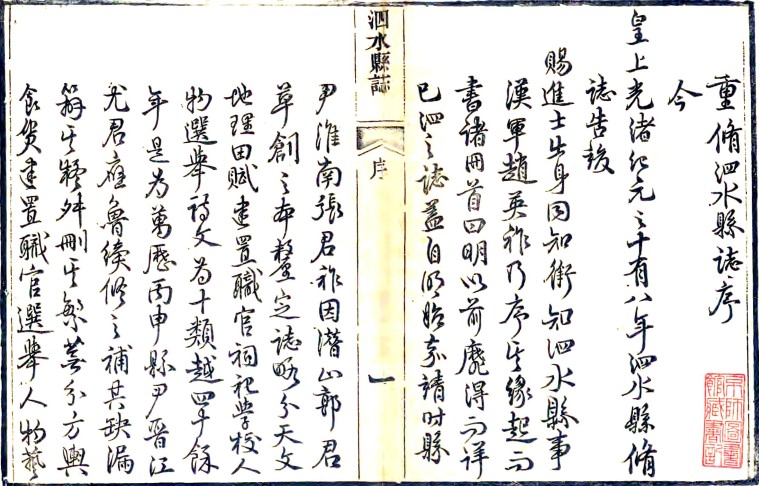 重脩泗水縣誌序
今
皇上光緒紀元之十有八年泗水縣脩
誌告竣
賜進士出身同知銜知泗水縣事
漢軍趙英祚乃序其緣起而
書諸冊首曰明以前靡得而詳
已泗之誌蓋自明始嘉靖時縣
泗水縣誌
序
一
尹淮南張君祚因潛山郭君
草創之本釐定誌略分天文
地理田賦建置職官祠祀學校人
物選舉詩文為十類越四十餘
年是為萬歷丙申縣尹晉江
尤君應魯續修之補其缺漏
辨其訛舛刪其繁蕪分方輿
食貨建置職官選舉人物藝